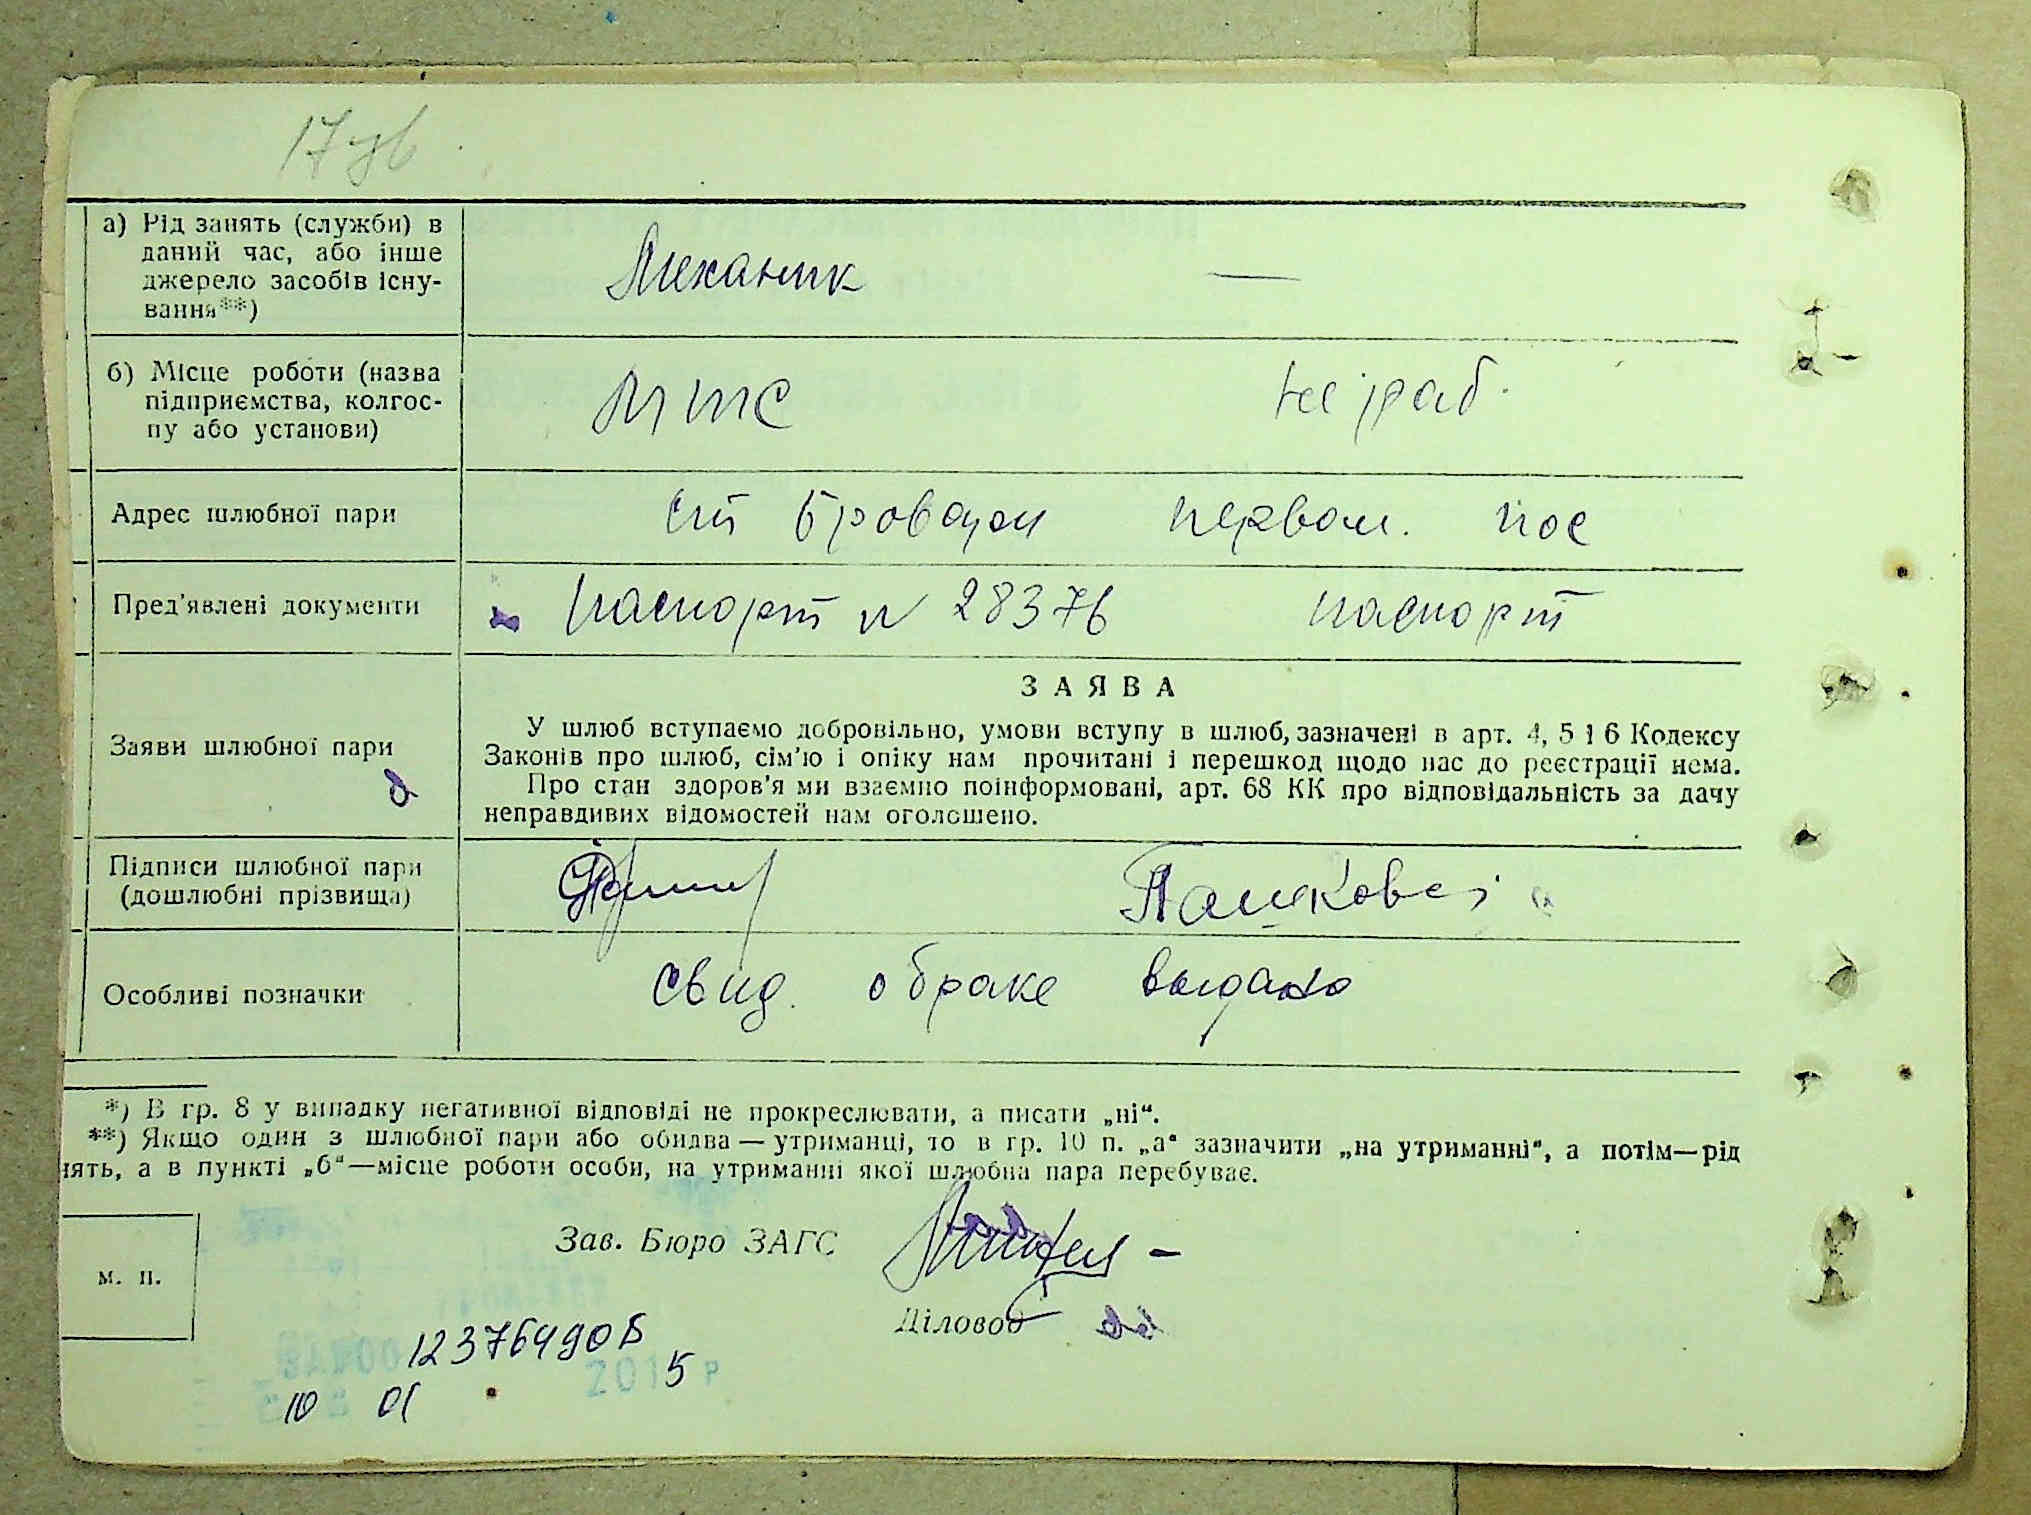 17 зв
а) Рід занять (служби) в
даний час, або інше
джерело засобів існу-
вання**)
Механик
—
б) Місце роботи (назва
підприємства, колгос-
пу або установи)
МТС
не раб.
Адрес шлюбної пари
ст Бровары первом. пос
Пред'явлені документи
паспорт N 28376
паспорт
Заяви шлюбної пари
ЗАЯВА
У шлюб вступаємо добровільно, умови вступу в шлюб, зазначені в арт. 4, 5 і 6 Кодексу
Законів про шлюб, сім'ю і опіку нам прочитані і перешкод щодо нас до реєстрації нема.
Про стан здоров'я ми взаємно поінформовані, арт. 68 КК про відповідальність за дачу
неправдивих відомостей нам оголошено.
Підписи шлюбної пари
(дошлюбні прізвища)
Особливі позначки
свид. о браке выдано
*) В гр. 8 у випадку негативної відповіді не прокреслювати, а писати „ні“.
**) Якщо один з шлюбної пари або обидва — утриманці, то в гр. 10 п. „а“ зазначити „на утриманні“, а потім—рід
нять, а в пункті „б“—місце роботи особи, на утриманні якої шлюбна пара перебуває.
Зав. Бюро ЗАГС
м. п.
Діловод
123764906
2015 р
10 01